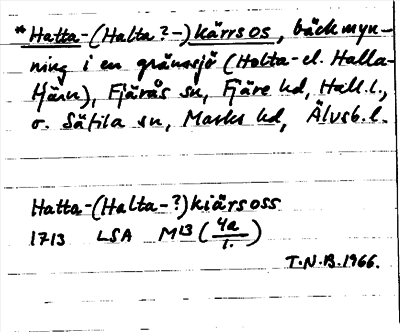 *Hatta-(Halta?-)kärrsos, bäckmyn-
ning i en gränssjö (Holta- el. Halla-
tjärn), Fjärås sn, Fjäre hd, Hall.l.,
o. Sätila sn, Marks hd, Älvsb.l.
Hatta-(Halta-?)kiärsoss
1713 LSA M13 (4a/1.)
T.N.B.1966.